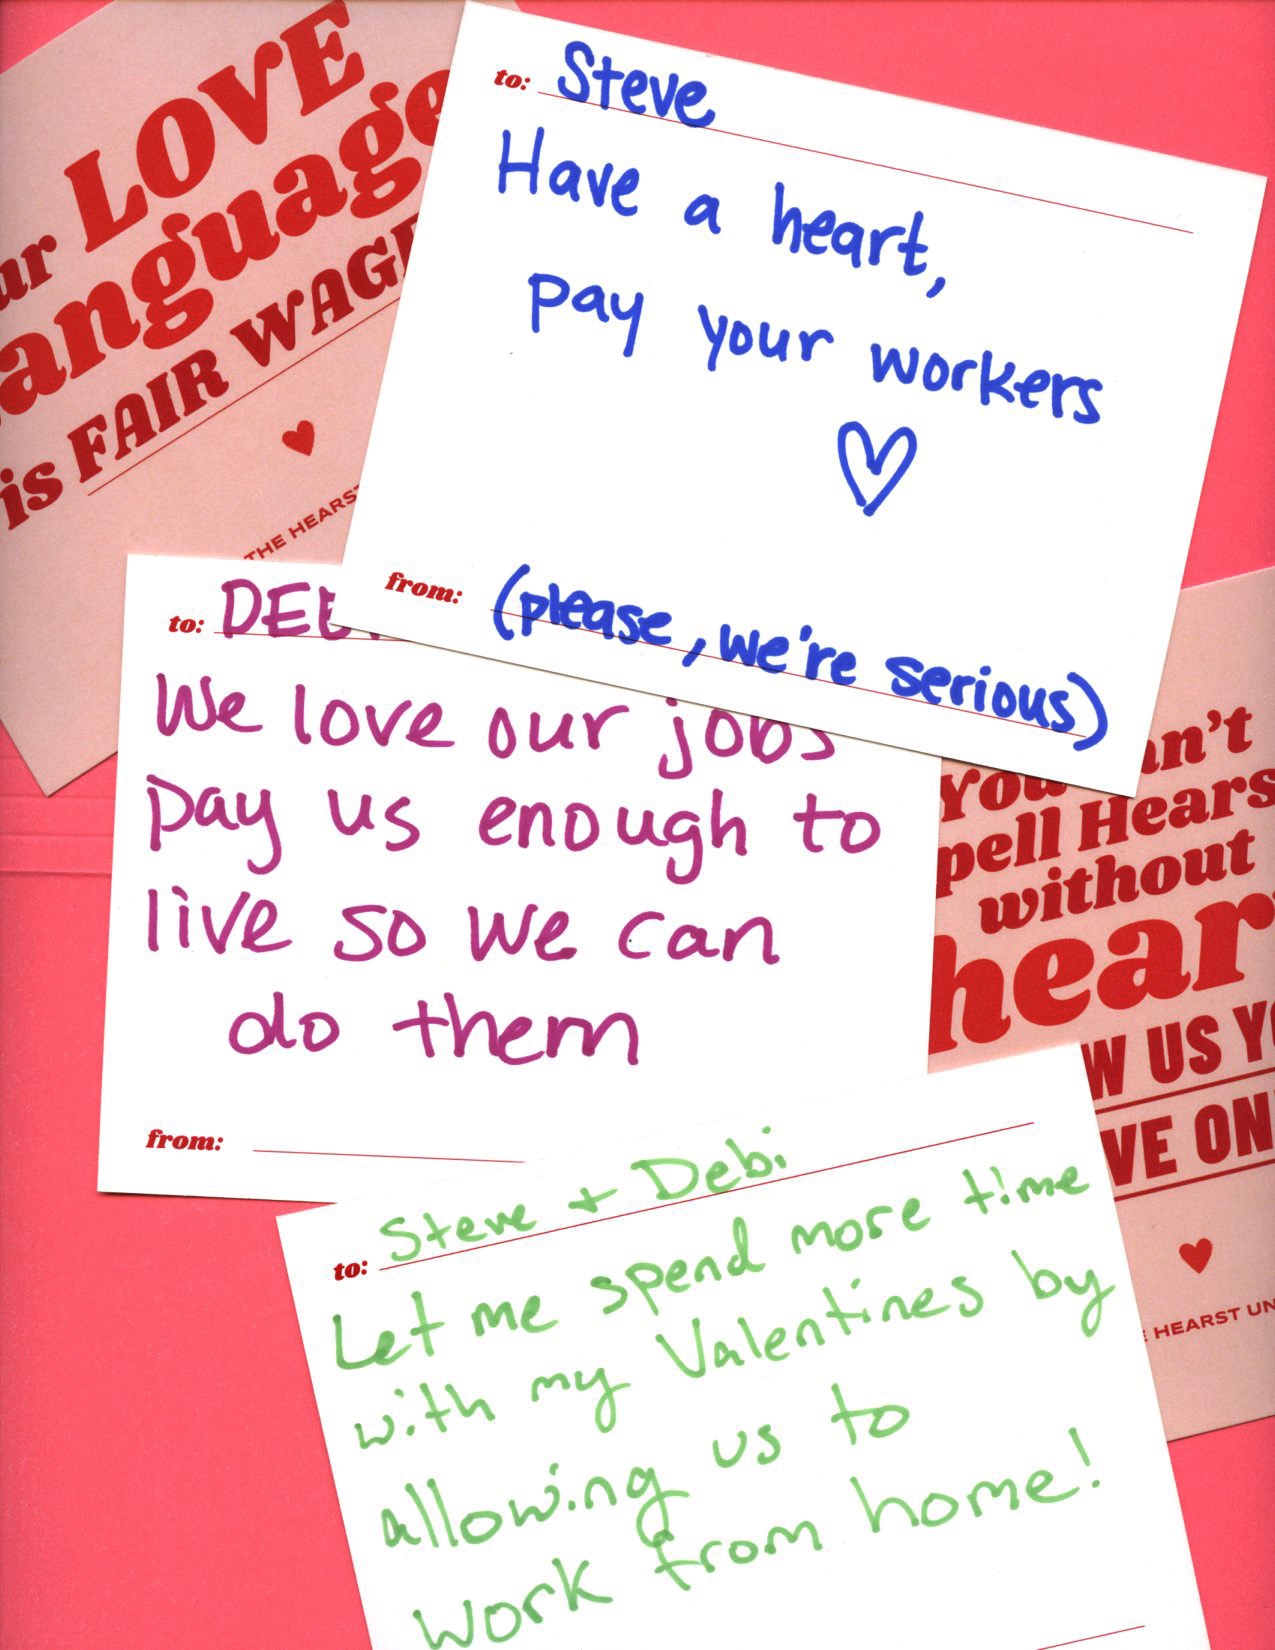 LOVE
anguage
is FAIR WAGE
THE HEARST
to: Steve
Have a heart,
pay your workers
♡
from: (please, we're serious)
to:
We love our jobs
pay us enough to
live so we can
do them
from:
without
hear
W US
VE ON
HEARST UN
to: Steve + Debi
Let me spend more time
with my Valentines by
allowing us to
work from home!